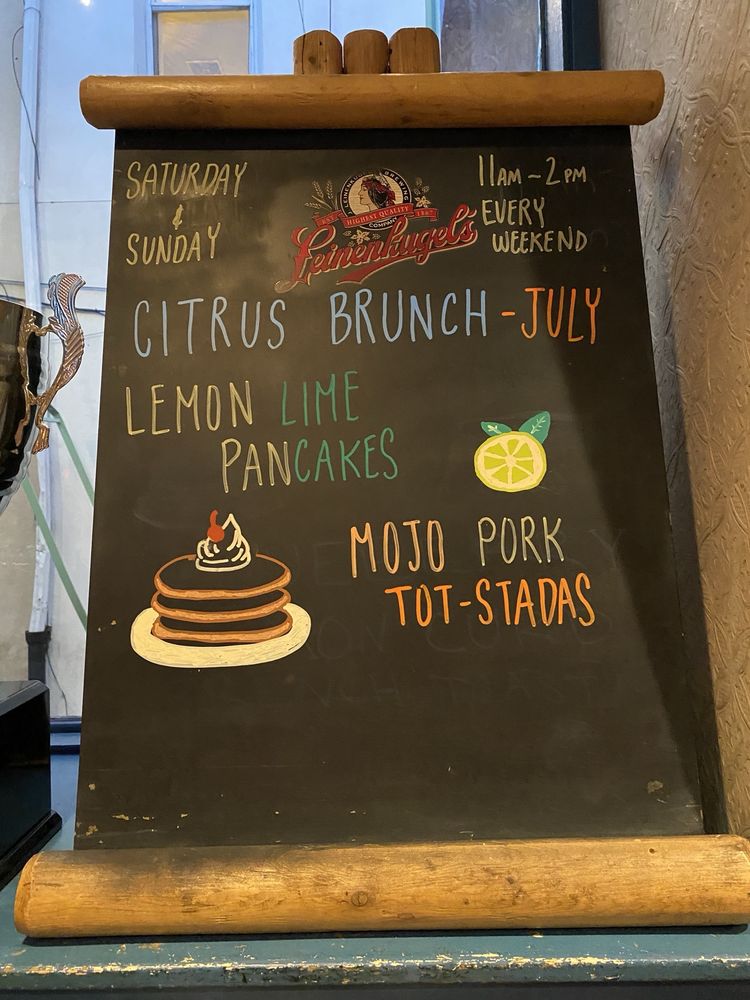 SATURDAY
&
SUNDAY
LEINENKUGEL BREWING
EST. HIGHEST QUALITY 1867
COMPANY
Leinenkugel's
11AM - 2 PM
EVERY
WEEKEND
CITRUS BRUNCH - JULY
LEMON LIME
PANCAKES
MOJO PORK
TOT-STADAS